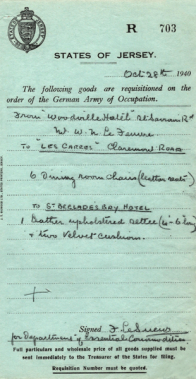 R 703
STATES OF JERSEY.
Oct 28th 1940
The following goods are requisitioned on the
order of the German Army of Occupation.
From "Woodville Hotel"
Mr W. N. Le
To "Les Carres" Claremont Road
6 Dining room chairs (leather seats)
To St Brelades Bay Hotel
1 leather upholstered settee
+ two Velvet cushions.
Signed
for Department of Essential Commodities.
Full particulars and wholesale price of all goods supplied must be
sent immediately to the Treasurer of the States for filing.
Requisition Number must be quoted.